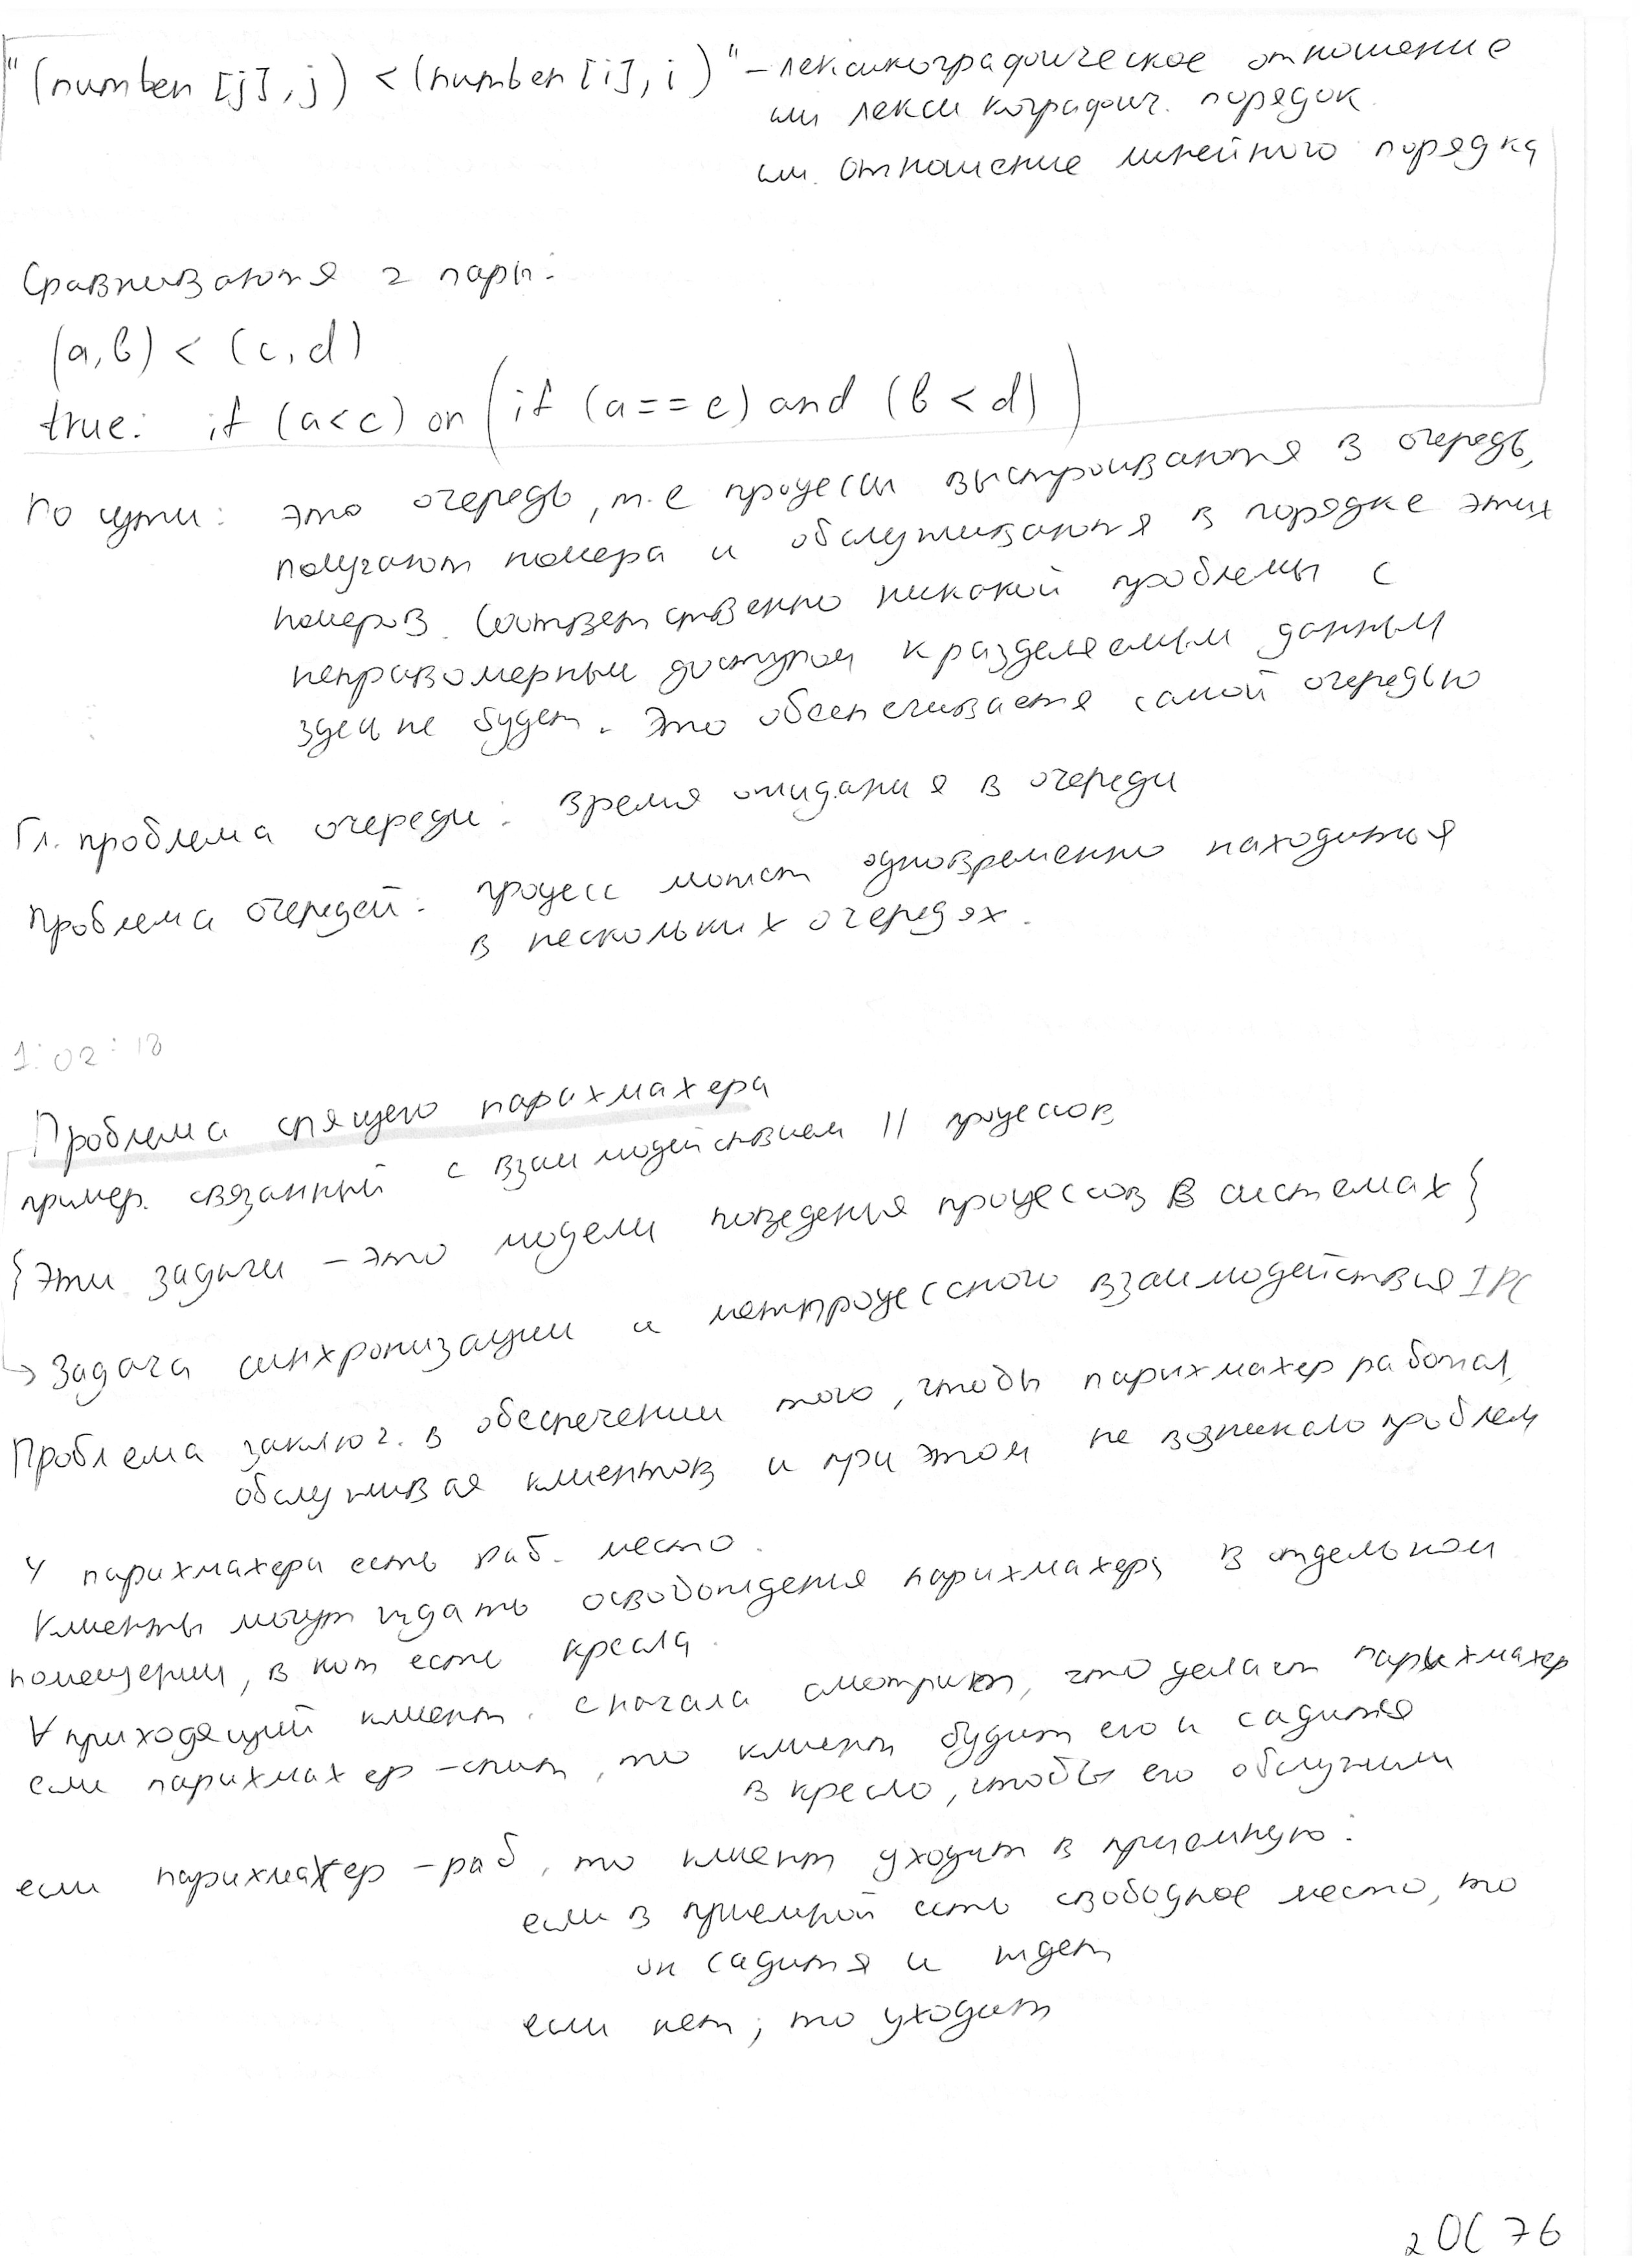 "(number [j], j) < (number [i], i)" – лексикографическое отношение
или лексикографич. порядок
или отношение линейного порядка
Сравниваются 2 пары:
(a, b) < (c, d)
true: if (a<c) or (if (a==c) and (b<d))
По сути: это очередь, т.е процессы выстраиваются в очередь,
получают номера и обслуживаются в порядке этих
номеров. Соответственно никакой проблемы с
неправомерным доступом к разделяемым данным
здесь не будет. Это обеспечивается самой очередью
Гл. проблема очереди: время ожидания в очереди
Проблема очередей: процесс может одновременно находиться
в нескольких очередях.
1:02:18
Проблема спящего парихмахера
пример. связанный с взаимодействием || процессов
{Эти задачи – это модели поведения процессов в системах}
→ Задача синхронизации и межпроцессного взаимодействия IPC
Проблема заключ. в обеспечении того, чтобы парихмахер работал,
обслуживая клиентов и при этом не возникало проблем
У парихмахера есть раб. место.
Клиенты могут ждать освобождения парихмахера в отдельном
помещении, в кот есть кресла.
∀ приходящий клиент. сначала смотрит, что делает парихмахер
если парихмахер – спит, то клиент будит его и садится
в кресло, чтобы его обслужили
если парихмахер – раб, то клиент уходит в приемную:
если в приемной есть свободное место, то
он садится и ждет
если нет, то уходит
2 ОС 76